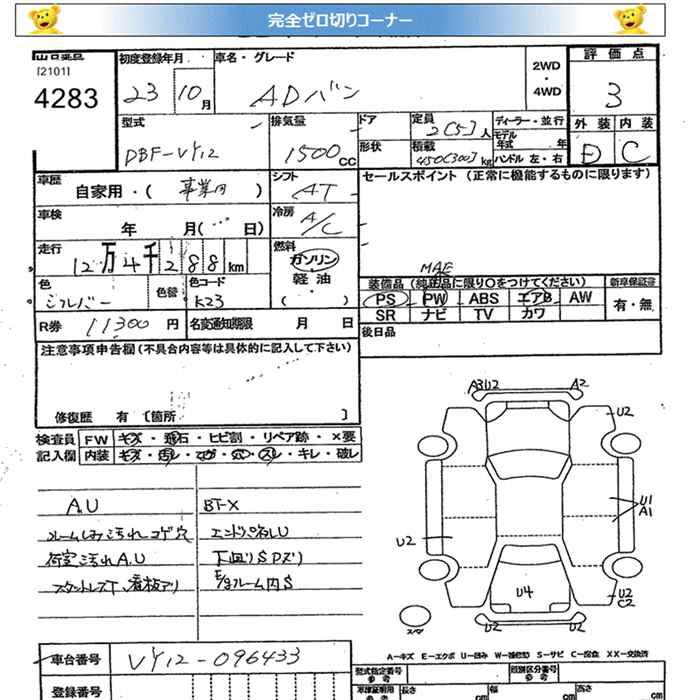 完全ゼロ切りコーナー
[2101]
4283
初度登録年月
23 10月
車名・グレード
ADバン
2WD
・
4WD
評価点
3
型式
DBF-VY12
排気量
1500cc
ドア
形状
定員
2(5)人
積載
450(300)kg
ディーラー・並行
モデル年式 年
ハンドル 左・右
外装 内装
D C
車歴
自家用・(事業用)
シフト
AT
セールスポイント(正常に機能するものに限ります)
車検
年 月( 日)
冷房
A/C
走行
12万4千288km
燃料
ガソリン
・
軽油
・
( )
色
シルバー
色替
色コード
K23
MAE
装備品(純正品に限り○をつけてください)
新車保証書
PS PW ABS エアB AW
有・無
SR ナビ TV カワ
R券 11300円
名変通知期限 月 日
後日品
注意事項申告欄(不具合内容等は具体的に記入して下さい)
修復歴 有〔箇所 〕
検査員 FW キズ・飛石・ヒビ割・リペア跡・×要
記入欄 内装 キズ・汚レ・コゲ・穴・スレ・キレ・破レ
A.U
BT-X
ルームしみ汚れコゲ穴
エンドパネルU
荷室汚れA.U
下廻りSアズリ
スタットレスT、看板アリ
E/gルーム内S
A3U2
A2
U2
U1
A1
U2
U4
U2
C2
U2
U2
スペア
A-キズ E-エクボ U-凹み W-補修跡 S-サビ C-腐食 XX-交換済
車台番号 VY12-096433
型式指定番号
参考
類別区分番号
参考
登録番号
車庫証明用
参考
長さ cm
幅 cm
高さ cm